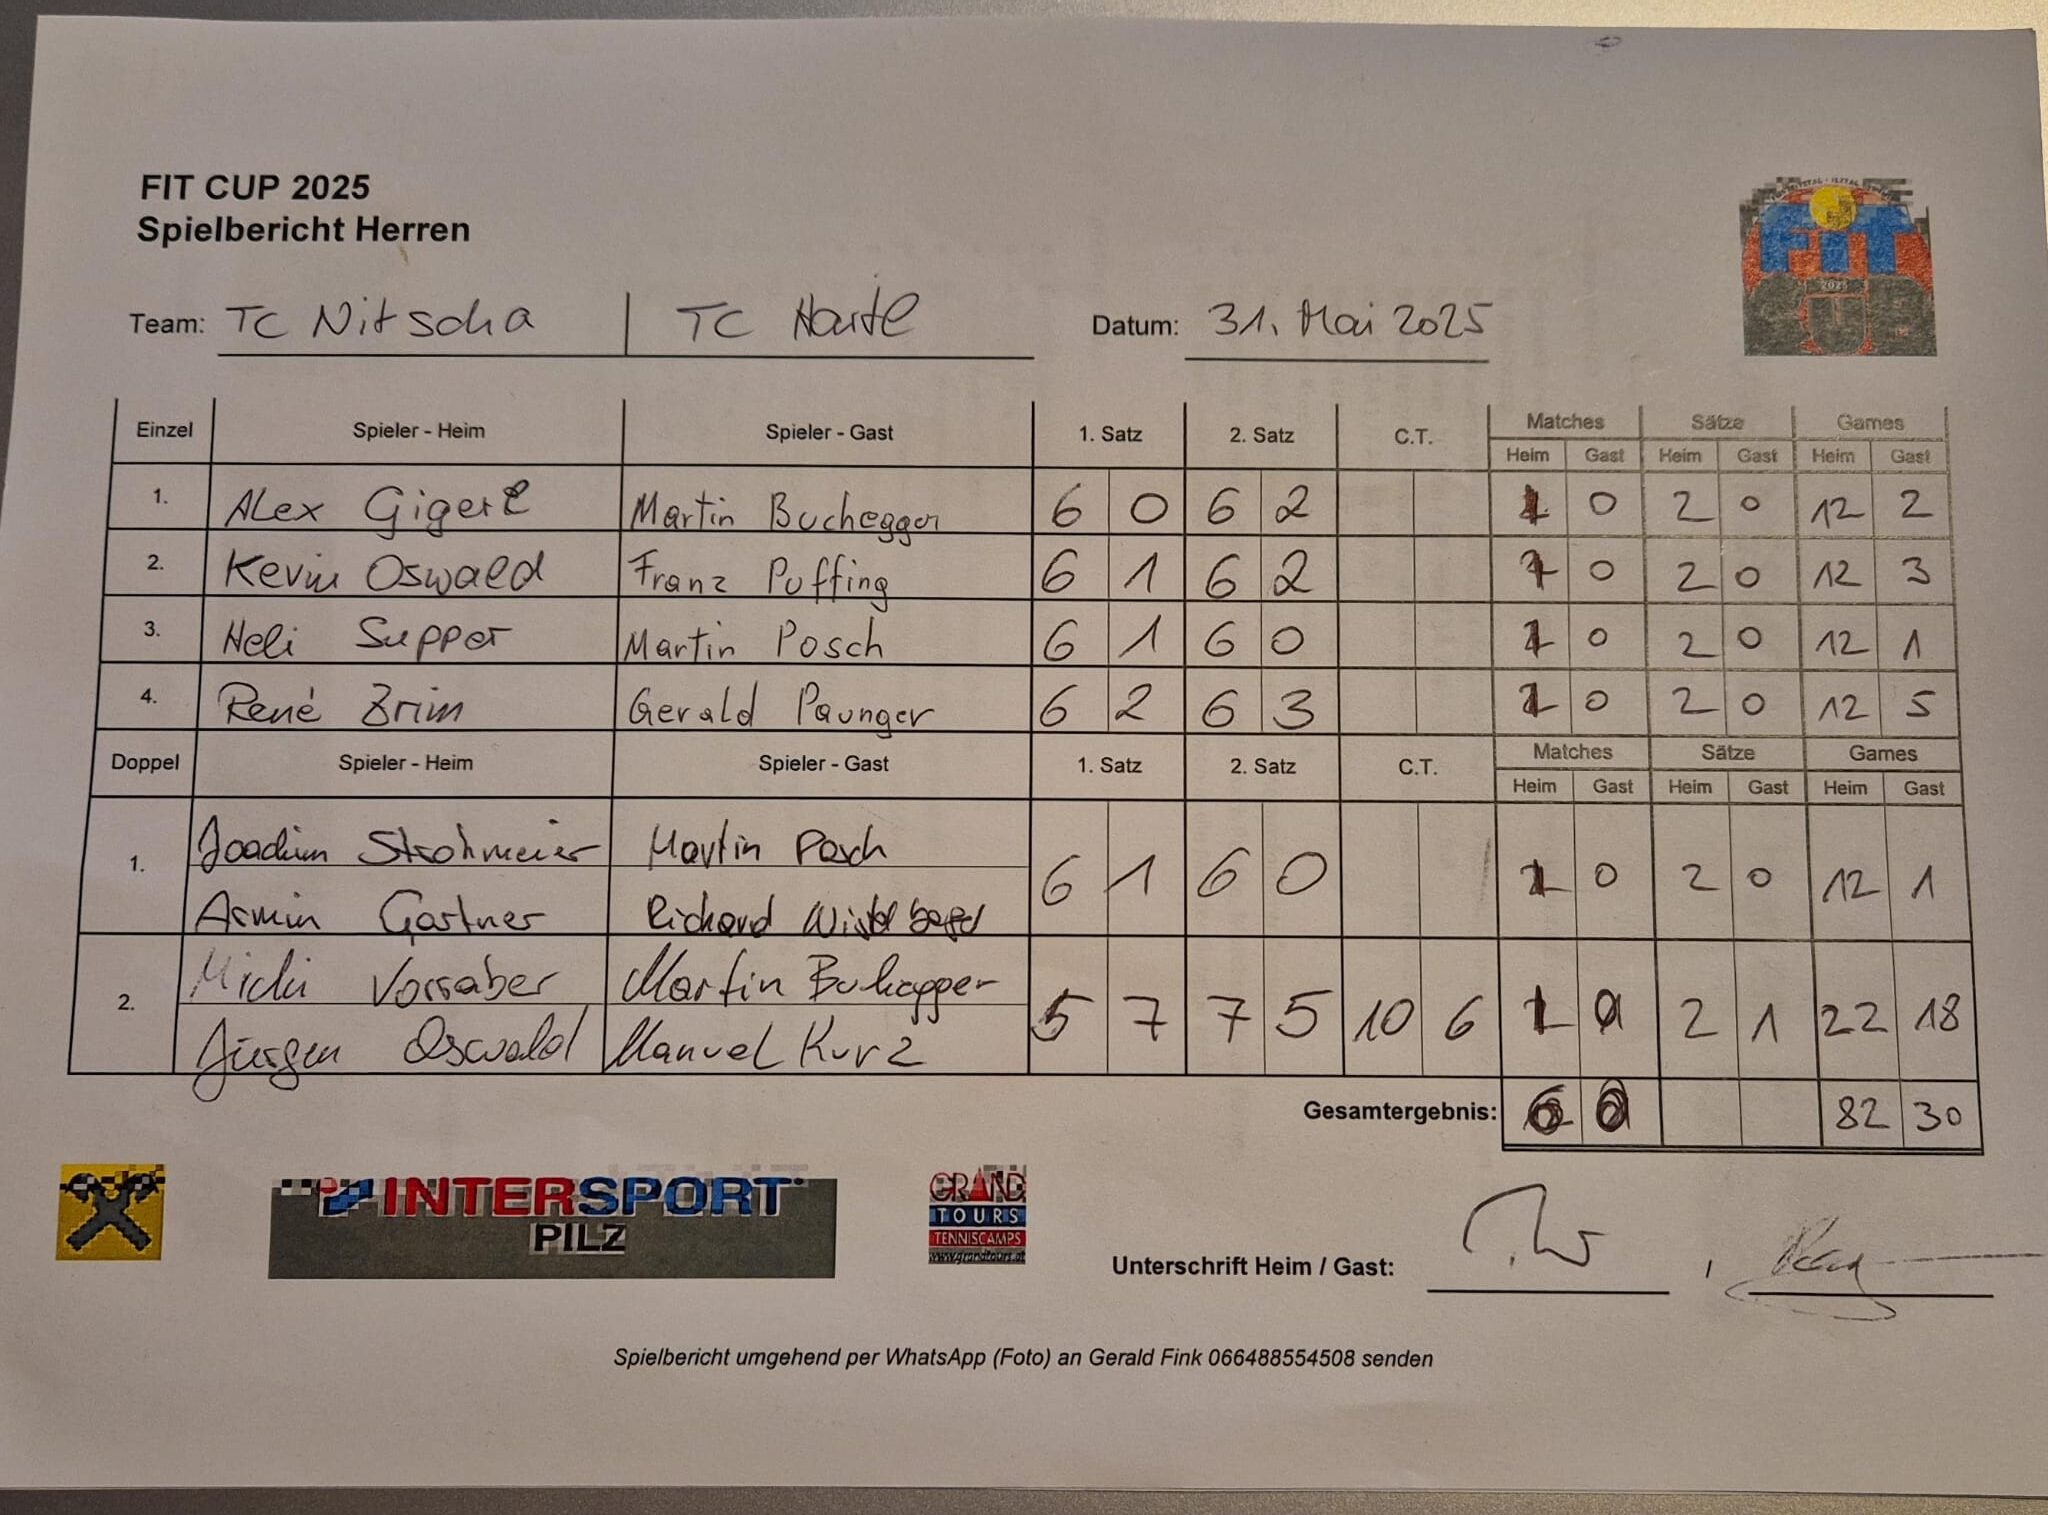 FIT CUP 2025
Spielbericht Herren
FIT
2025
CUP
Team: TC Nitscha | TC Hartl Datum: 31. Mai 2025
Einzel Spieler - Heim Spieler - Gast 1. Satz 2. Satz C.T. Matches Sätze Games
Heim Gast Heim Gast Heim Gast
1. Alex Gigerl Martin Buchegger 6 0 6 2 1 0 2 0 12 2
2. Kevin Oswald Franz Puffing 6 1 6 2 1 0 2 0 12 3
3. Heli Supper Martin Posch 6 1 6 0 1 0 2 0 12 1
4. René Brim Gerald Paunger 6 2 6 3 1 0 2 0 12 5
Doppel Spieler - Heim Spieler - Gast 1. Satz 2. Satz C.T. Matches Sätze Games
Heim Gast Heim Gast Heim Gast
Joachim Strohmeier Martin Posch
1. 6 1 6 0 1 0 2 0 12 1
Armin Gartner Richard
Michi Vorraber Martin Buchegger
2. 5 7 7 5 10 6 1 0 2 1 22 18
Jürgen Oswald Manuel Kurz
Gesamtergebnis: 6 0 82 30
INTERSPORT
PILZ
GRAND
TOURS
TENNISCAMPS
www.grandtours.at
Unterschrift Heim / Gast: ,
Spielbericht umgehend per WhatsApp (Foto) an Gerald Fink 066488554508 senden